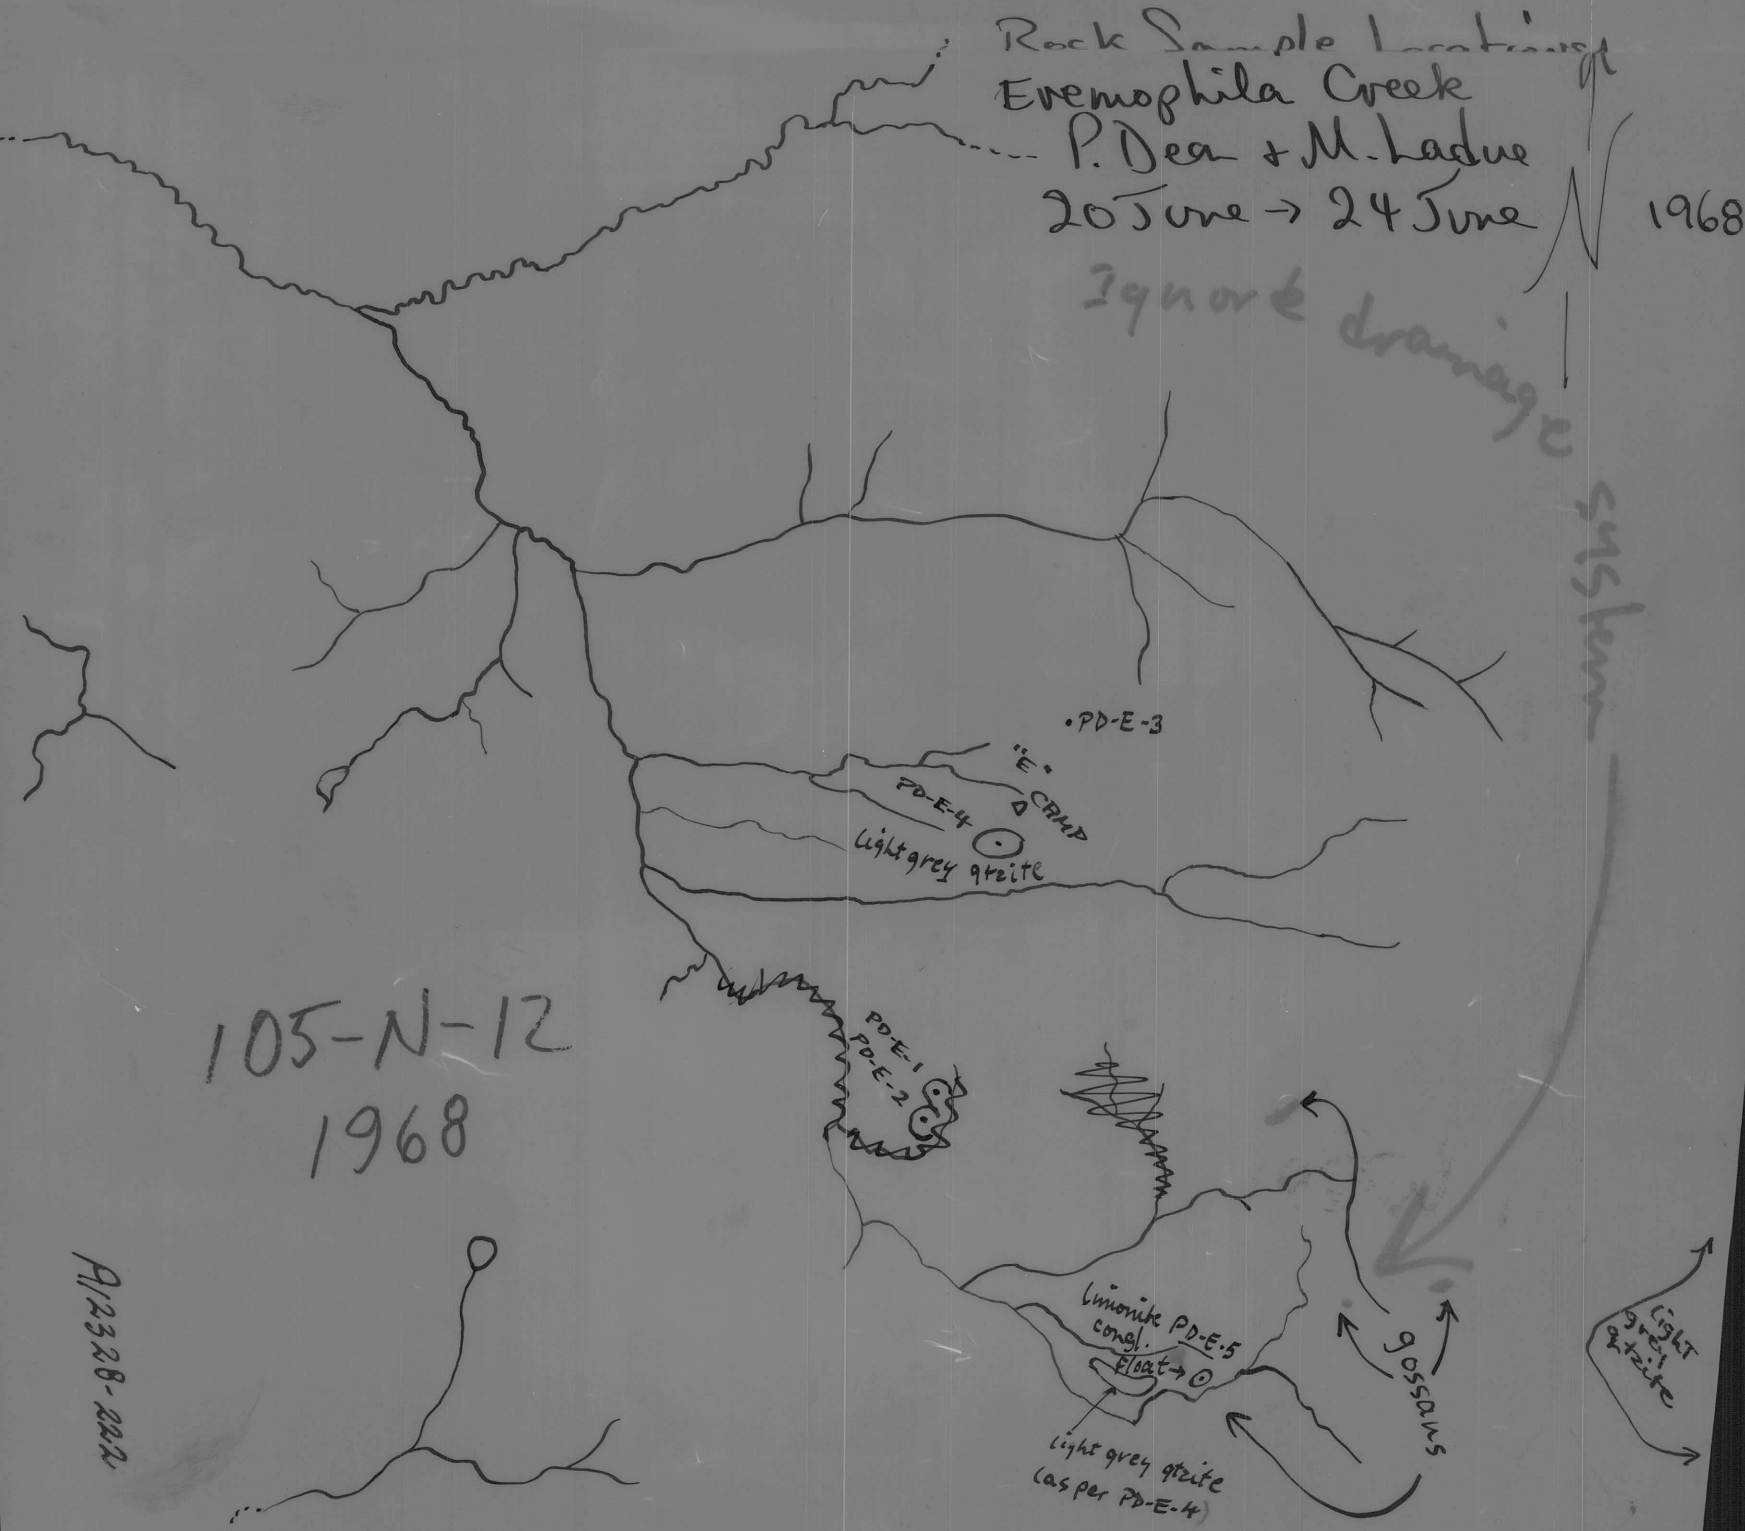 Rock Sample Locations
Eremophila Creek
P. Dean + M. Ladue
20 June → 24 June 1968
N
Ignore drainage system
• PD-E-3
"E"
CAMP
PD-E-4
light grey qtzite
105-N-12
1968
PD-E-1
PD-E-2
limonite
congl.
PD-E-5
float →
gossans
light
grey
qtzite
light grey qtzite
(as per PD-E-4)
A12328-222